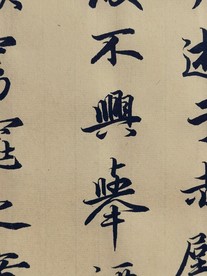 遊于赤壁
波不興舉酒
窈窕之章